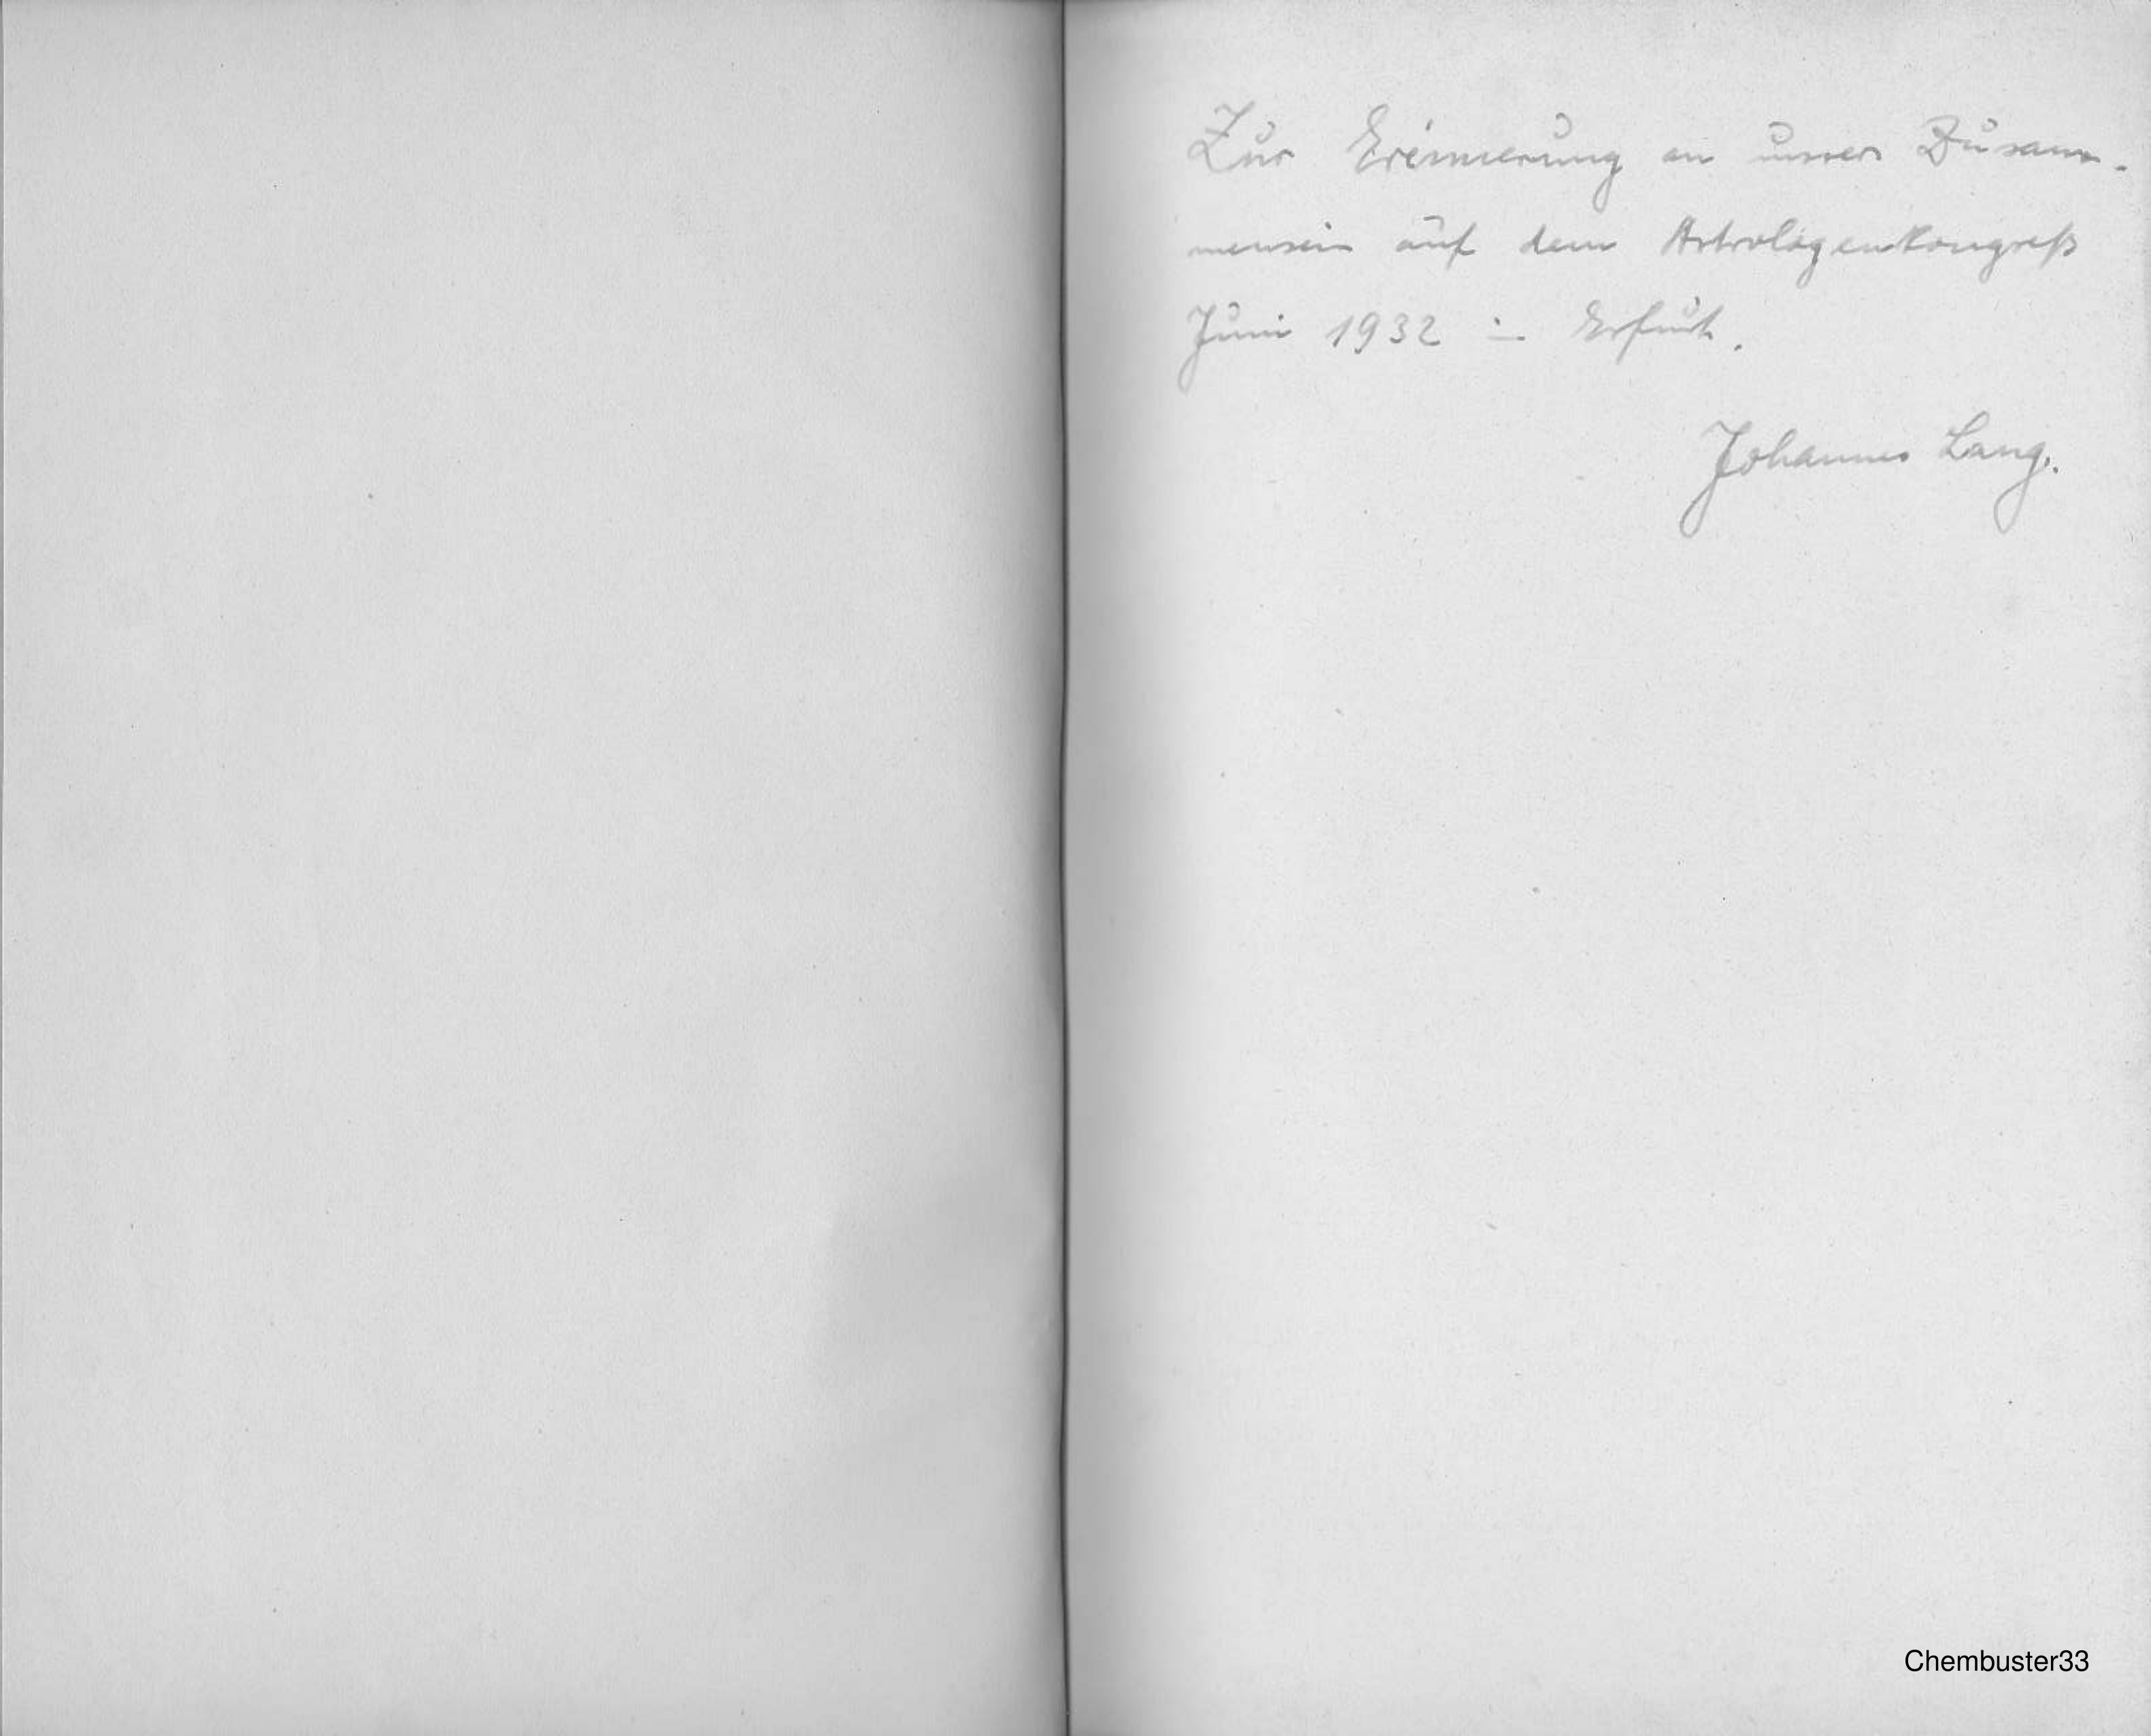 Zur Erinnerung an unser Zusam-
mensein auf dem Astrologenkongreß
Juni 1932 in Erfurt.
Johannes Lang.
Chembuster33